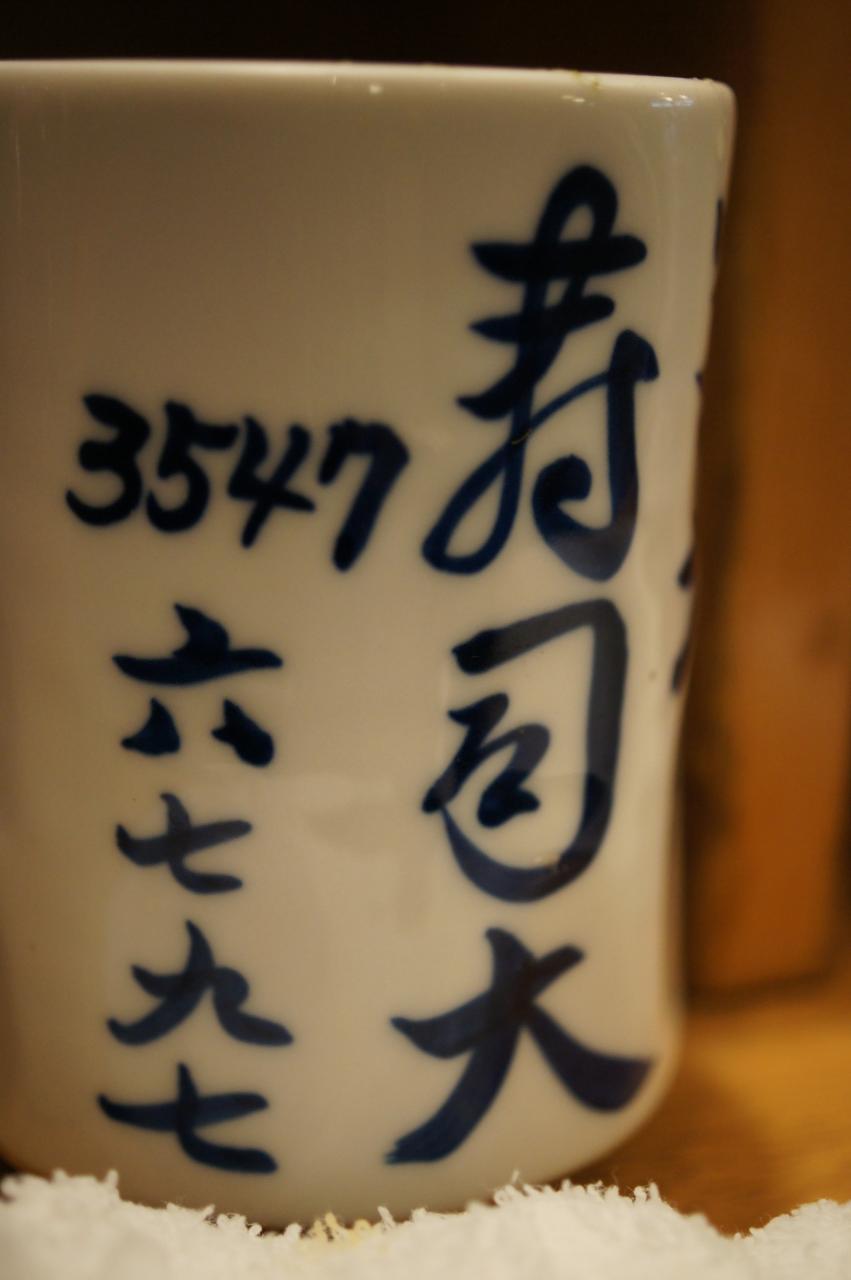 寿司大
3547
六七九七